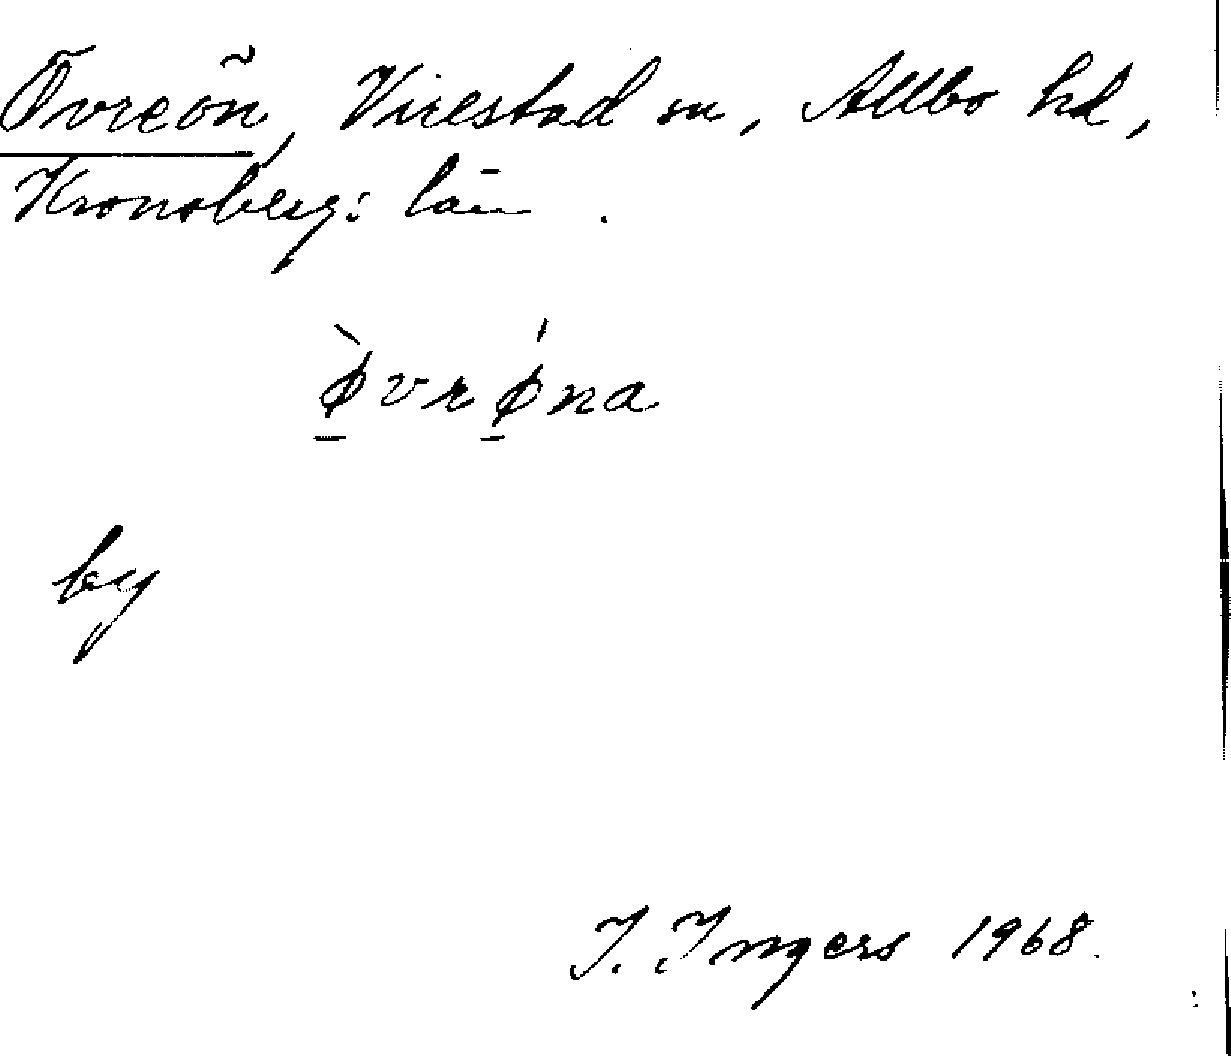 Övreön, Virestad sn, Allbo hd,
Kronobergs län.
ø̠̀vrǿ̠na
by
I. Ingers 1968.